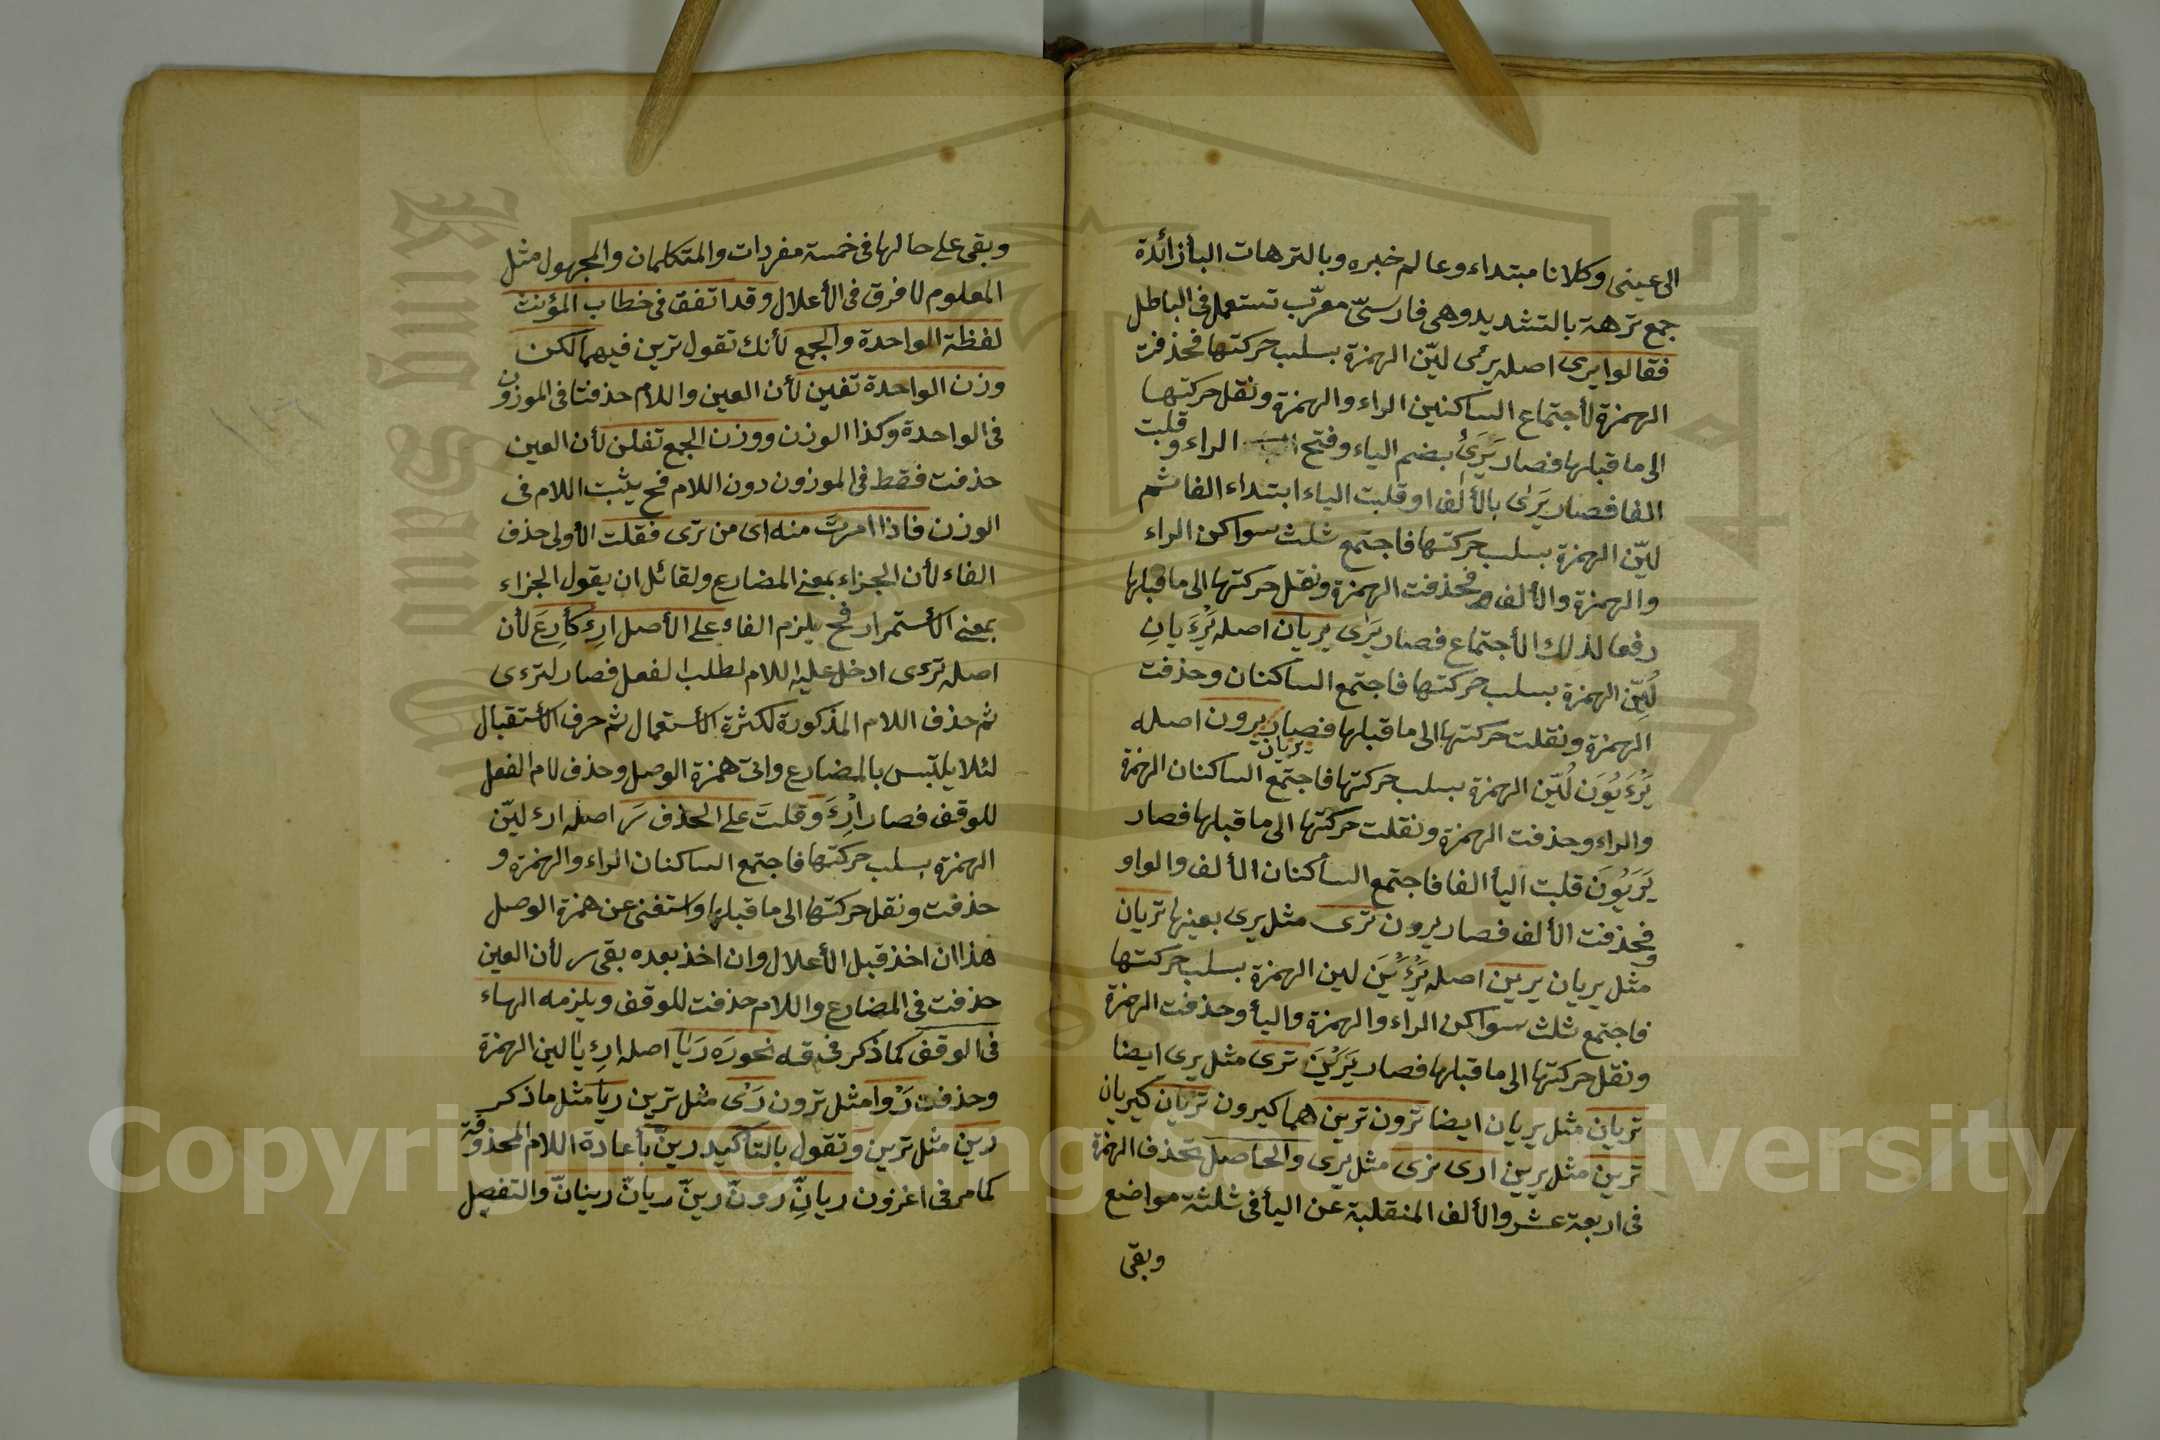 الى عينى وكلانا مبتداء وعالم خبره وبالترهات البأ زائدة
جمع ترهة بالتشديد وهى فارسىّ معرّب تستعمل فى الباطل
فقالوا يرى اصله يرئى ليّن الهمزة بسلب حركتها فحذفت
الهمزة لأجتماع الساكنين الراء والهمزة ونقل حركتها
الى ما قبلها فصار يَرَىُ بضم الياء وفتح الراء وقلبت
الفا فصار يَرَى بالألف او قلبت الياء ابتداء الفا ثم
ليّن الهمزة بسلب حركتها فاجتمع ثلث سواكن الراء
والهمزة والألف فحذفت الهمزة ونقل حركتها الى ما قبلها
رفعا لذلك الأجتماع فصار يَرَى يريان اصله يَرْءَيانِ
لُيّن الهمزة بسلب حركتها فاجتمع الساكنان وحذفت
الهمزة ونقلت حركتها الى ما قبلها فصار يريان يرون اصله
يَرْءَيُونَ لُيّن الهمزة بسلب حركتها فاجتمع الساكنان الهمزة
والراء وحذفت الهمزة ونقلت حركتها الى ما قبلها فصار
يَرَيُونَ قلبت اليأ الفا فاجتمع الساكنان الألف والواو
فحذفت الألف فصار يرون ترى مثل يرى بعينها تريان
مثل يريان يرين اصله يَرْءَيْنَ لين الهمزة بسلب حركتها
فاجتمع ثلث سواكن الراء والهمزة واليأ وحذفت الهمزة
ونقل حركتها الى ما قبلها فصار يَرَيْنَ ترى مثل يرى ايضا
تريان مثل يريان ايضا ترون ترين هما كيرون تريان كيريان
ترين مثل يرين ارى نرى مثل يرى والحاصل تحذف الهمزة
فى اربعة عشر والألف المنقلبة عن اليأ فى ثلثة مواضع
وبقى
وبقى على حالها فى خمسة مفردات والمتكلمان والمجهول مثل
المعلوم لا فرق فى الأعلال وقد اتفق فى خطاب المؤنث
لفظة الواحدة والجمع لأنك تقول ترين فيهما لكن
وزن الواحدة تفين لأن العين واللام حذفتا فى الموزون
فى الواحدة وكذا الوزن ووزن الجمع تفلن لأن العين
حذفت فقط فى الموزون دون اللام فح يثبت اللام فى
الوزن فاذا امرتَ منه اى من ترى فقلت الأولى حذف
الفاء لأن الجزاء بمعنى المضارع ولقائل ان يقول الجزاء
بمعنى الأستمرار فح يلزم الفاء على الأصل ارءِ كأرِعَ لأن
اصله ترءى ادخل عليه اللام لطلب الفعل فصار لترءى
ثم حذف اللام المذكورة لكثرة الأستعمال ثم حرف الأستقبال
لئلا يلتبس بالمضارع واتى همزة الوصل وحذف لام الفعل
للوقف فصار ارْءَ وقلتَ على الحذف رَ اصله ارء ليّن
الهمزة بسلب حركتها فاجتمع الساكنان الراء والهمزة و
حذفت ونقل حركتها الى ما قبلها واستغنى عن همزة الوصل
هذا ان اخذ قبل الأعلال وان اخذ بعده بقى ر لأن العين
حذفت فى المضارع واللام حذفت للوقف ويلزمه الهاء
فى الوقف كما ذكر فى قه نحو رَه رَيَا اصله ارءيا لين الهمزة
وحذفت رَوْا مثل ترون رَىْ مثل ترين ريا مثل ما ذكر
رين مثل ترين وتقول بالتأكيد رينّ بأعادة اللام المحذوفة
كما مر فى اغزون ريانِّ رونّ رينّ ريانّ رينانّ والتفصيل
Copyright © King Saud University